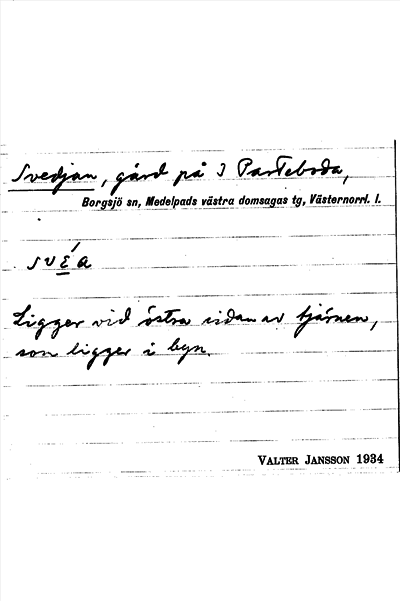 Svedjan, gård på 3 Parteboda,
Borgsjö sn, Medelpads västra domsagas tg, Västernorrl. l.
svɛ́a
Ligger vid östra sidan av tjärnen,
som ligger i byn.
VALTER JANSSON 1934